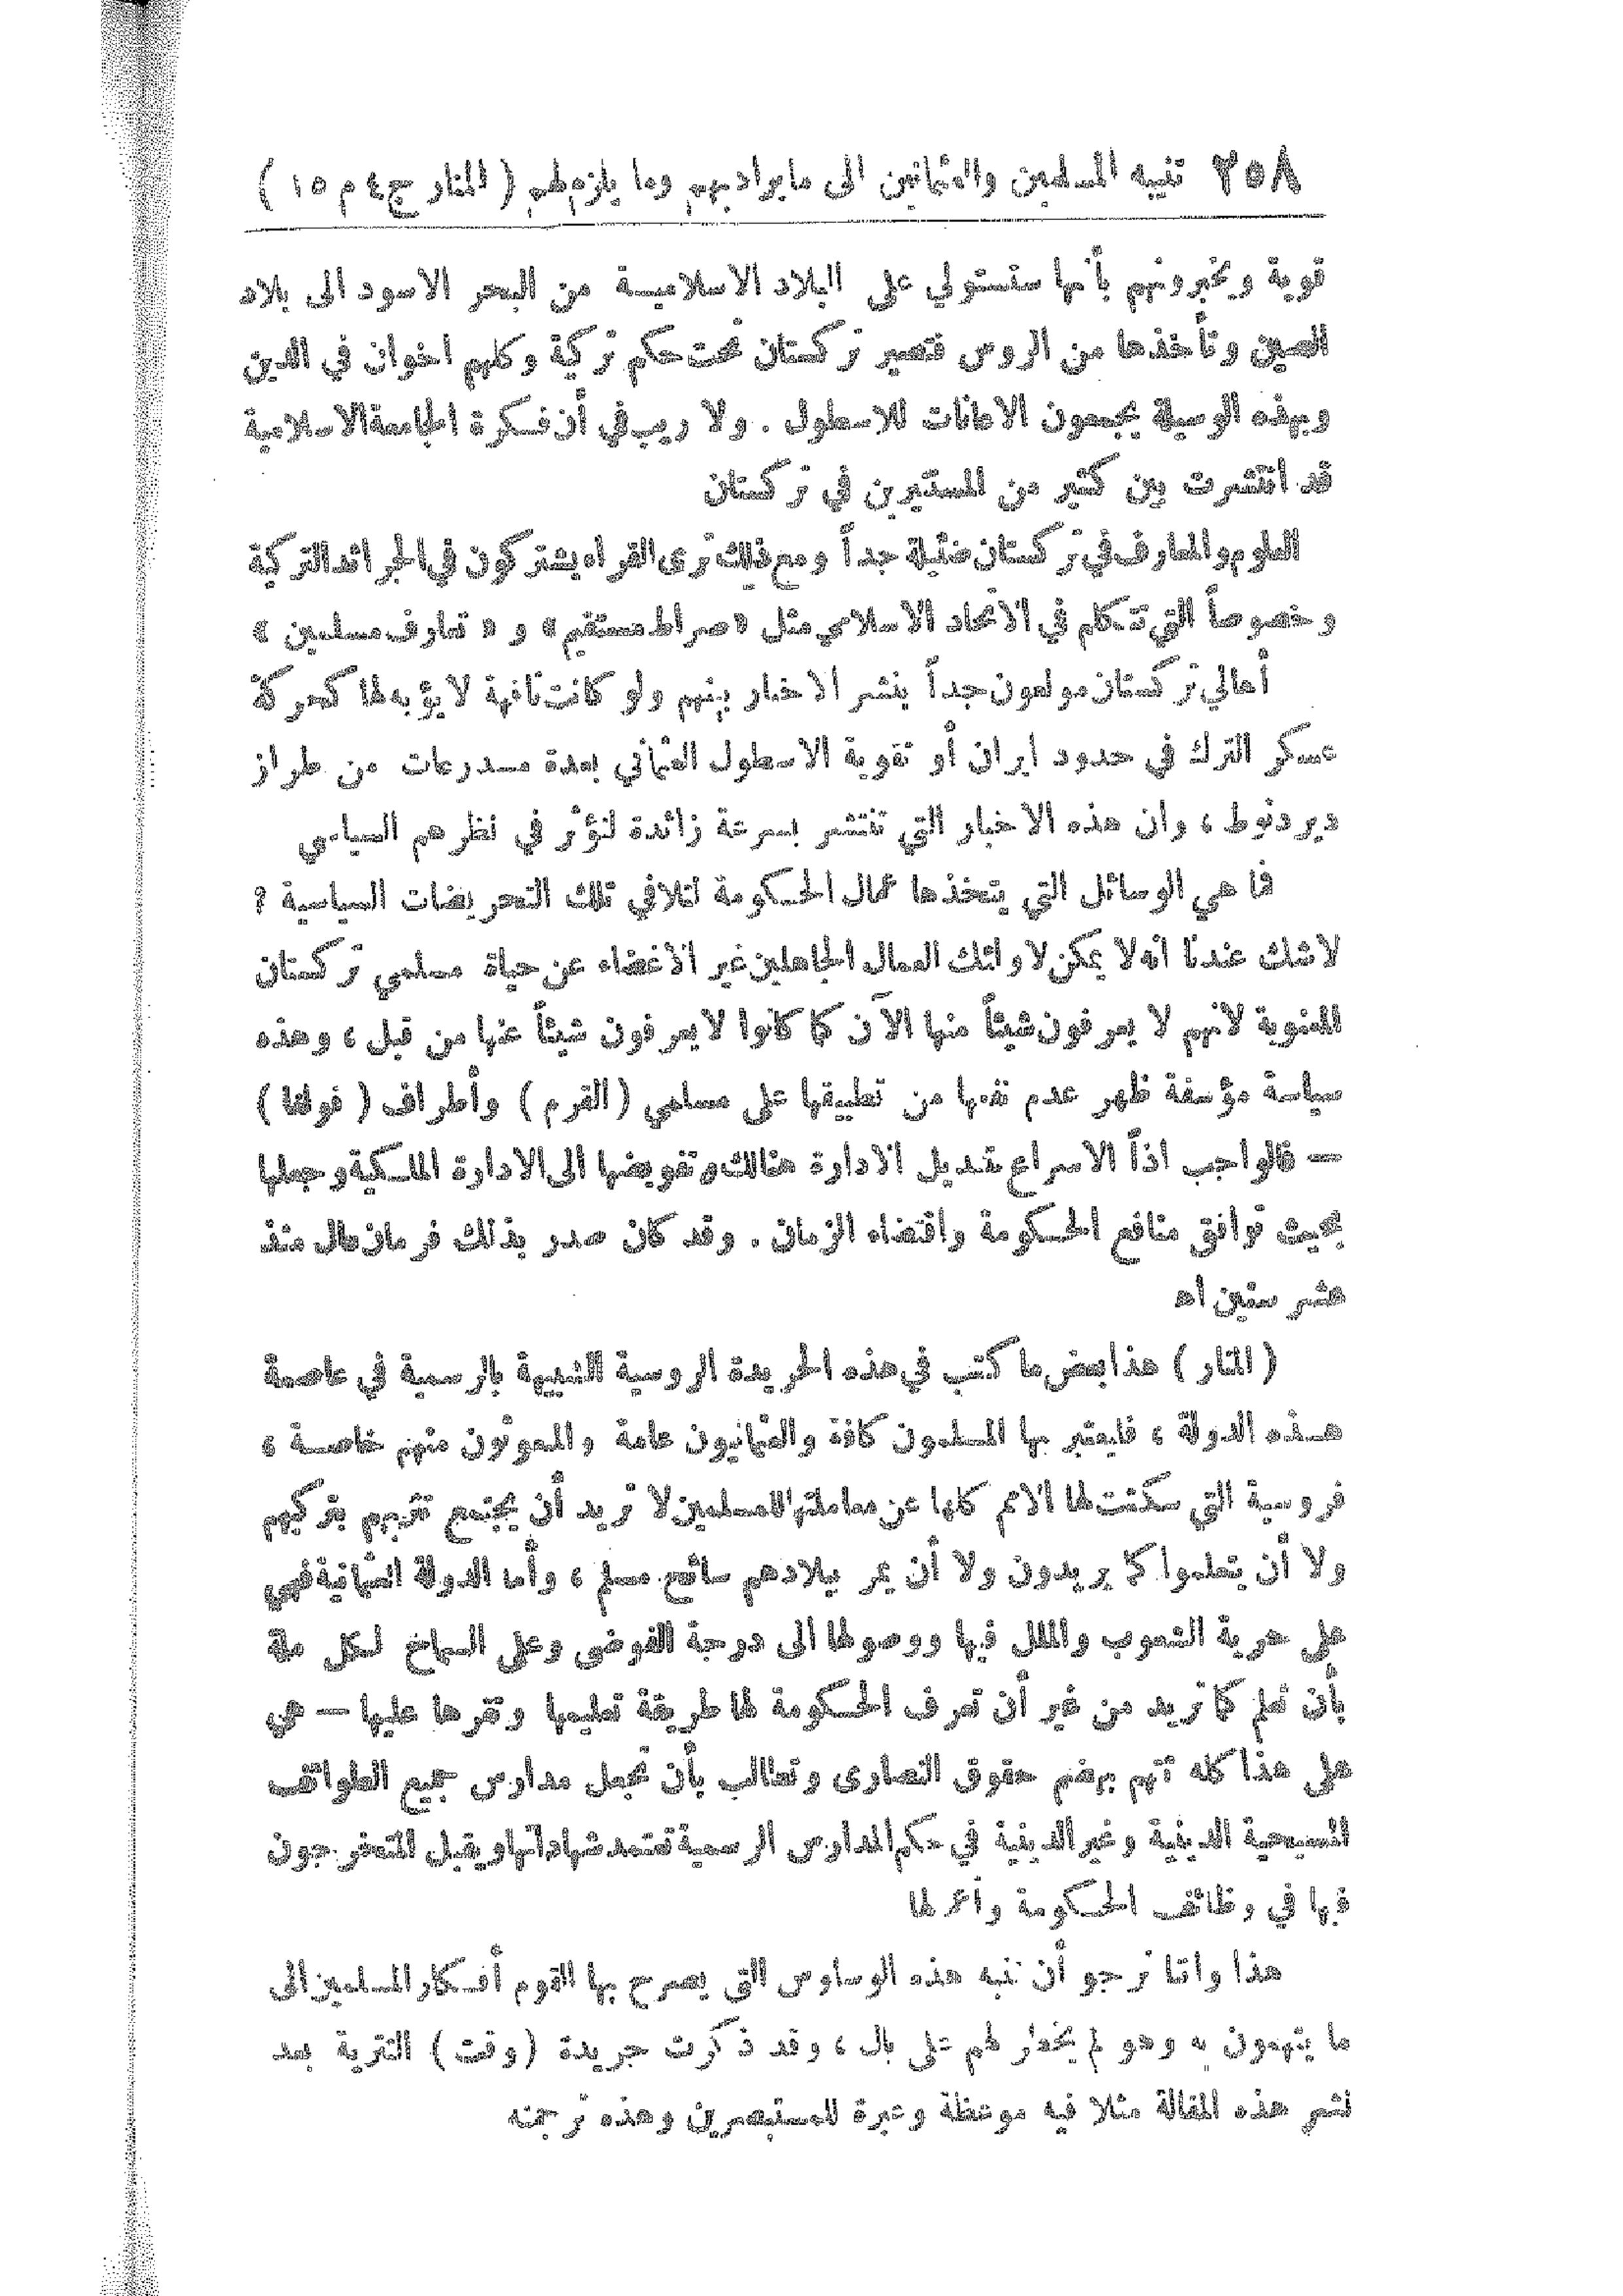 ٢٥٨ تنبيه المسلمين والعثمانيين الى ما يراد بهم وما يلزمهم ( المنار ج ٤ م ١٥ )
قوية ويخبرونهم بأنها ستستولي على البلاد الاسلامية من البحر الاسود الى بلاد
الصين وتأخذها من الروس فتصير تركستان تحت حكم تركية وكلهم اخوان في الدين
وبهذه الوسيلة يجمعون الاعانات للاسطول . ولا ريب في أن فكرة الجامعة الاسلامية
قد انتشرت بين كثير من المستنيرين في تركستان
العلوم والمعارف في تركستان ضئيلة جداً ومع ذلك ترى القراء يشتركون في الجرائد التركية
وخصوصاً التي تتكلم في الاتحاد الاسلامي مثل « صراط مستقيم » و « تعارف مسلمين »
أهالي تركستان مولعون جداً بنشر الاخبار بينهم ولو كانت تافهة لا يؤبه لها كحركة
عسكر الترك في حدود ايران أو تقوية الاسطول العثماني بعدة مدرعات من طراز
ديردنوط ، وان هذه الاخبار التي تنتشر بسرعة زائدة لتؤثر في نظرهم السياسي
فما هي الوسائل التي يتخذها عمال الحكومة لتلافي تلك التحريضات السياسية ؟
لا شك عندنا انه لا يمكن لاولئك العمال الجاهلين غير الاغضاء عن حياة مسلمي تركستان
المعنوية لانهم لا يعرفون شيئاً منها الآن كما كانوا لا يعرفون شيئاً عنها من قبل ، وهذه
سياسة مؤسفة ظهر عدم نفعها من تطبيقها على مسلمي ( القرم ) وأطراف ( فولغا )
— فالواجب اذاً الاسراع بتعديل الادارة هنالك وتفويضها الى الادارة الملكية وجعلها
بحيث توافق منافع الحكومة واقتضاء الزمان . وقد كان صدر بذلك فرمان عال منذ
عشر سنين اه
( المنار ) هذا بعض ما كتب في هذه الجريدة الروسية الشبيهة بالرسمية في عاصمة
هذه الدولة ، فليعتبر بها المسلمون كافة والعثمانيون عامة والمبعوثون منهم خاصة ،
فروسية التي سكتت لها الامم كلها عن معاملتها للمسلمين لا تريد أن يجتمع تتريهم بتركيهم
ولا أن يتعلموا كما يريدون ولا أن يمر ببلادهم سائح مسلم ، وأما الدولة العثمانية فهي
على حرية الشعوب والملل فيها ووصولها الى درجة الفوضى وعلى السماح لكل ملة
بأن تعلم كما تريد من غير أن تعرف الحكومة لها طريقة تعليمها وتقرها عليها — هي
على هذا كله تتهم بهضم حقوق النصارى وتطالب بأن تجعل مدارس جميع الطوائف
المسيحية الدينية وغير الدينية في حكم المدارس الرسمية تعتمد شهاداتها ويقبل المتخرجون
فيها في وظائف الحكومة وأعمالها
هذا واننا نرجو أن تنبه هذه الوساوس التي يصرح بها القوم أفكار المسلمين الى
ما يتهمون به وهو لم يخطر لهم على بال ، وقد ذكرت جريدة ( وقت ) التترية بعد
نشر هذه المقالة مثلا فيه موعظة وعبرة للمستبصرين وهذه ترجمته